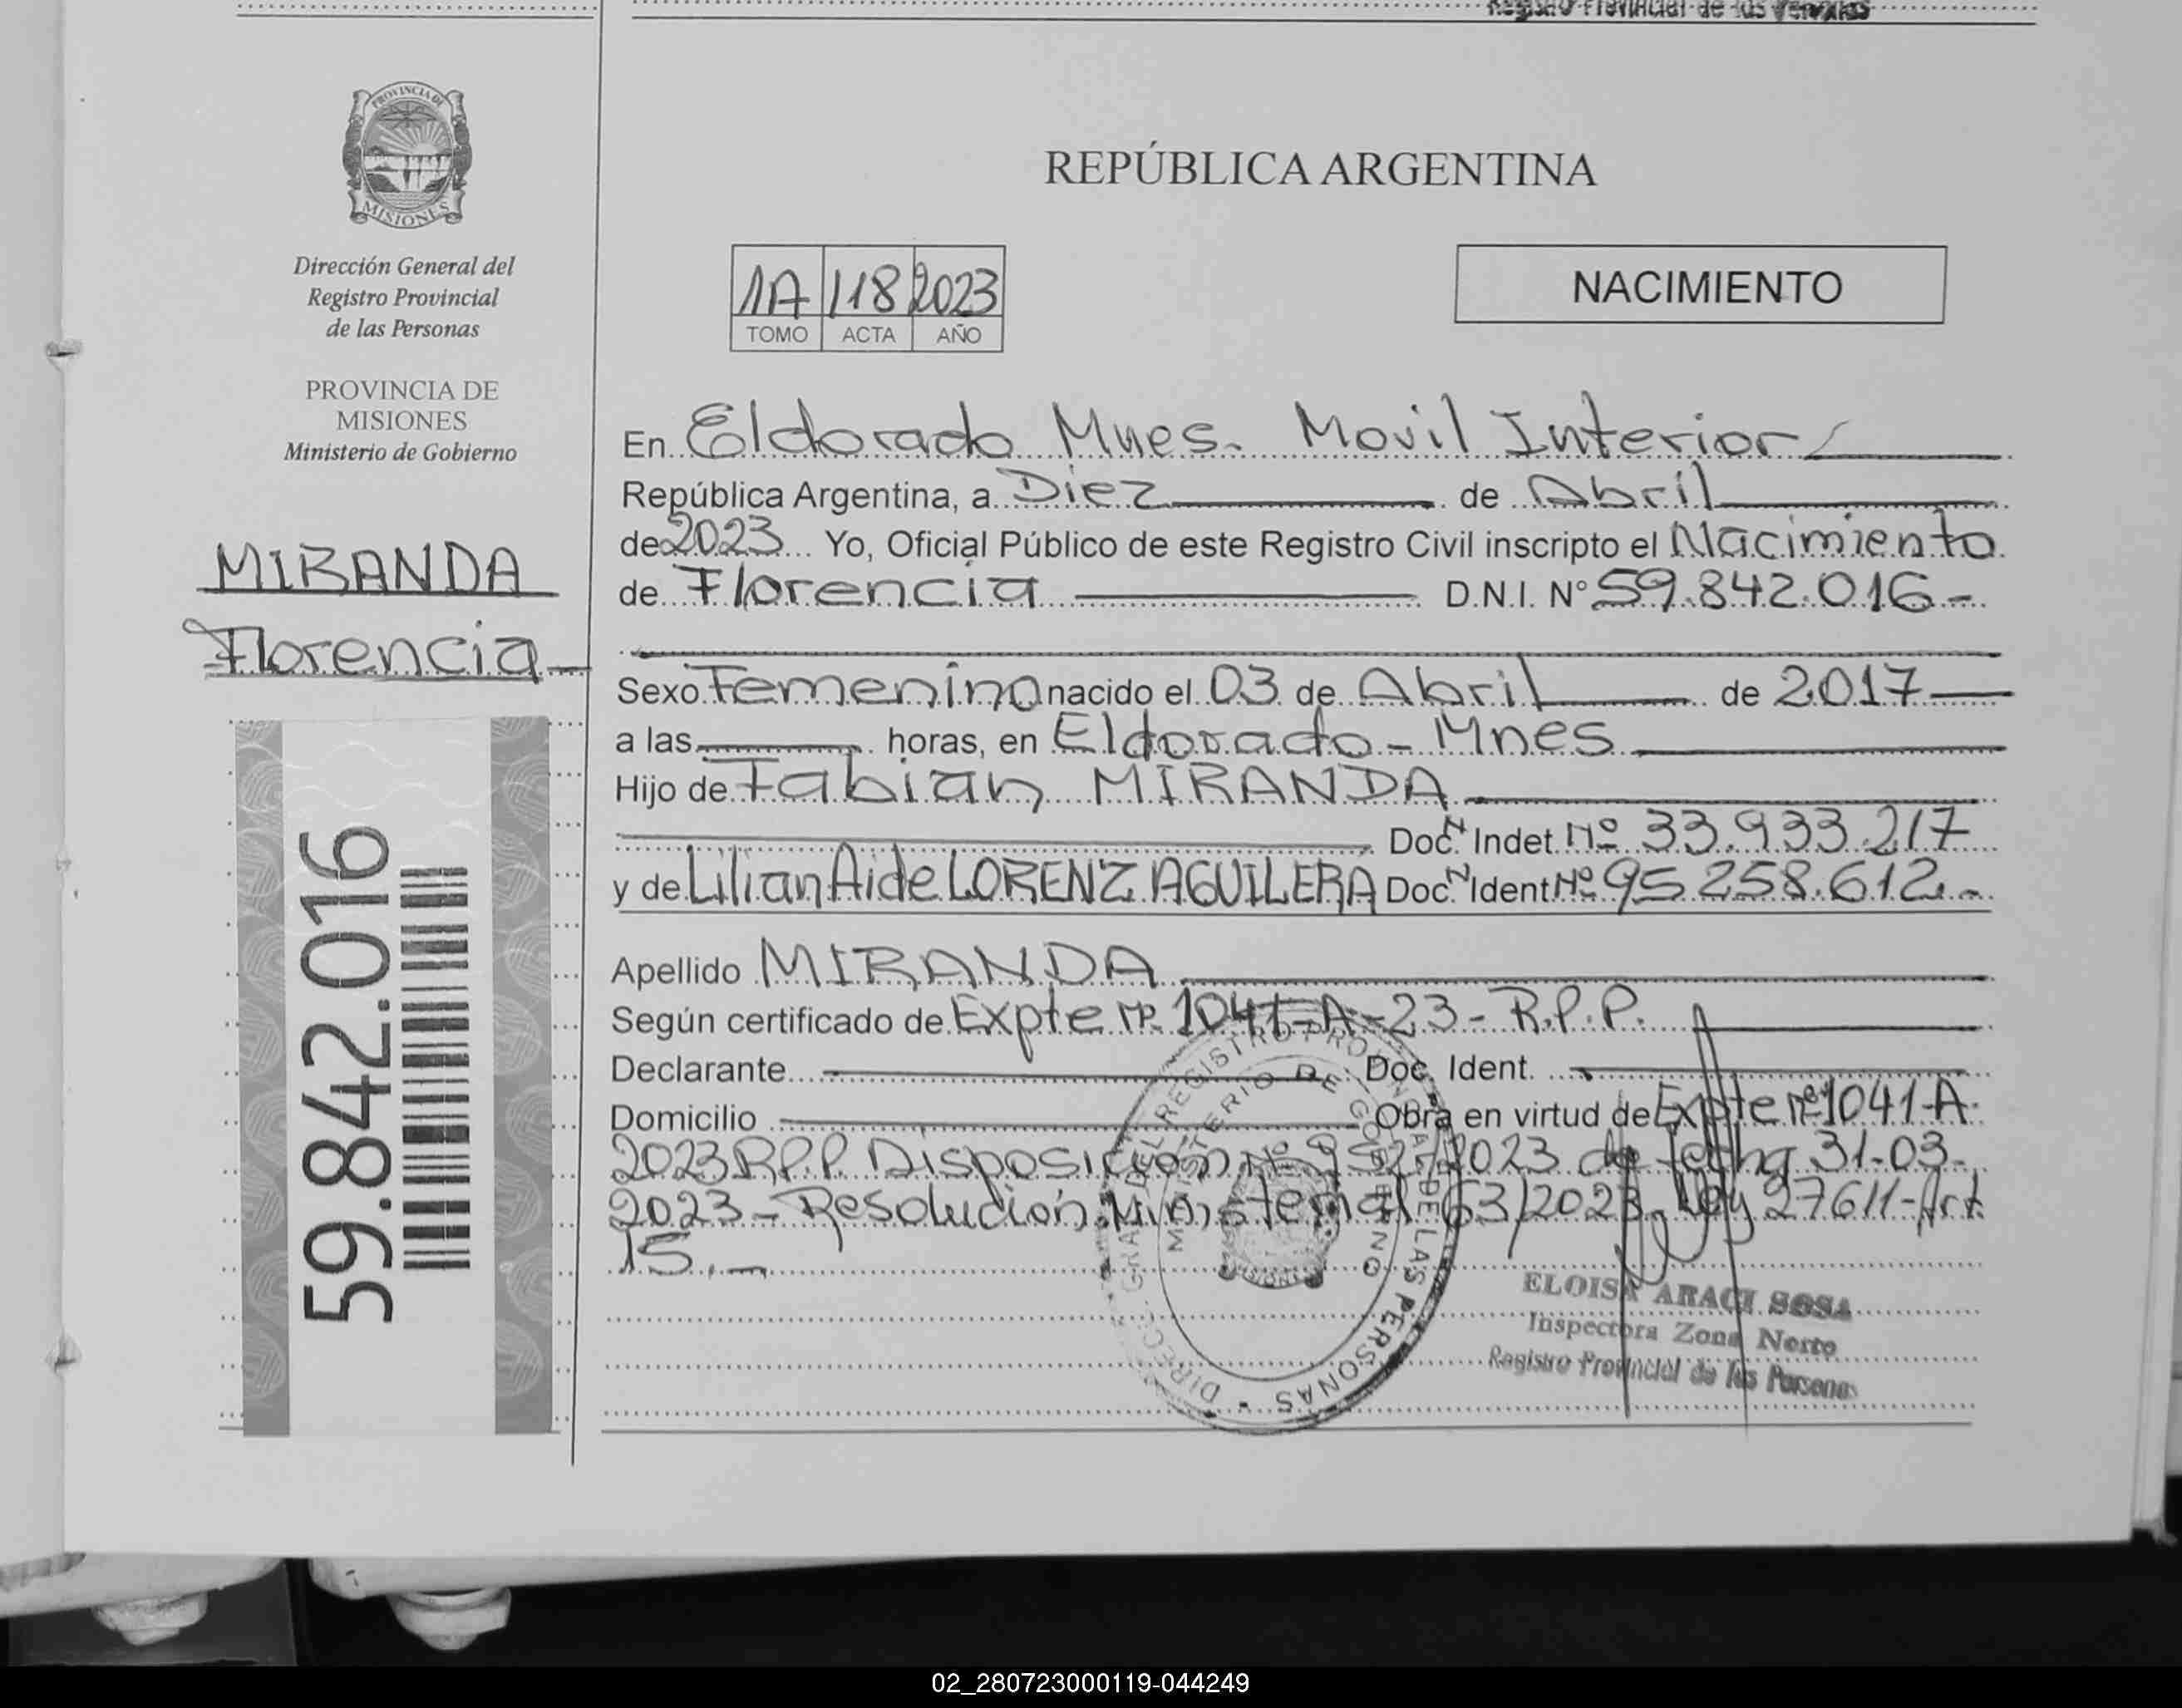 Registro Provincial de las Personas
PROVINCIA DE
MISIONES
Dirección General del
Registro Provincial
de las Personas
PROVINCIA DE
MISIONES
Ministerio de Gobierno
MIRANDA
Florencia
59.842.016
REPÚBLICA ARGENTINA
1A 118 2023
TOMO ACTA AÑO
NACIMIENTO
En Eldorado Mnes. Movil Interior
República Argentina, a Diez de Abril
de 2023 Yo, Oficial Público de este Registro Civil inscripto el Nacimiento
de Florencia D.N.I. N° 59.842.016-
Sexo Femenino nacido el 03 de Abril de 2017
a las horas, en Eldorado - Mnes
Hijo de Fabian MIRANDA
Doc. N Indet. Nº 33.933.217
y de Lilian Aide LORENZ AGUILERA Doc. N Ident Nº 95.258.612.-
Apellido MIRANDA
Según certificado de Expte Nº 1041-A-23- R.P.P.
Declarante Doc. Ident.
Domicilio Obra en virtud de Expte nº 1041-A-
2023 R.P.P. Disposición Nº /2023 de fecha 31-03-
2023 - Resolución Ministerial 63/2023 Ley 27611-Art
15.-
DIRECC. GRAL. DEL REGISTRO PROVINCIAL DE LAS PERSONAS
MINISTERIO DE GOBIERNO
MISIONES
ELOISA ARACI SOSA
Inspectora Zona Norte
Registro Provincial de las Personas
02_280723000119-044249